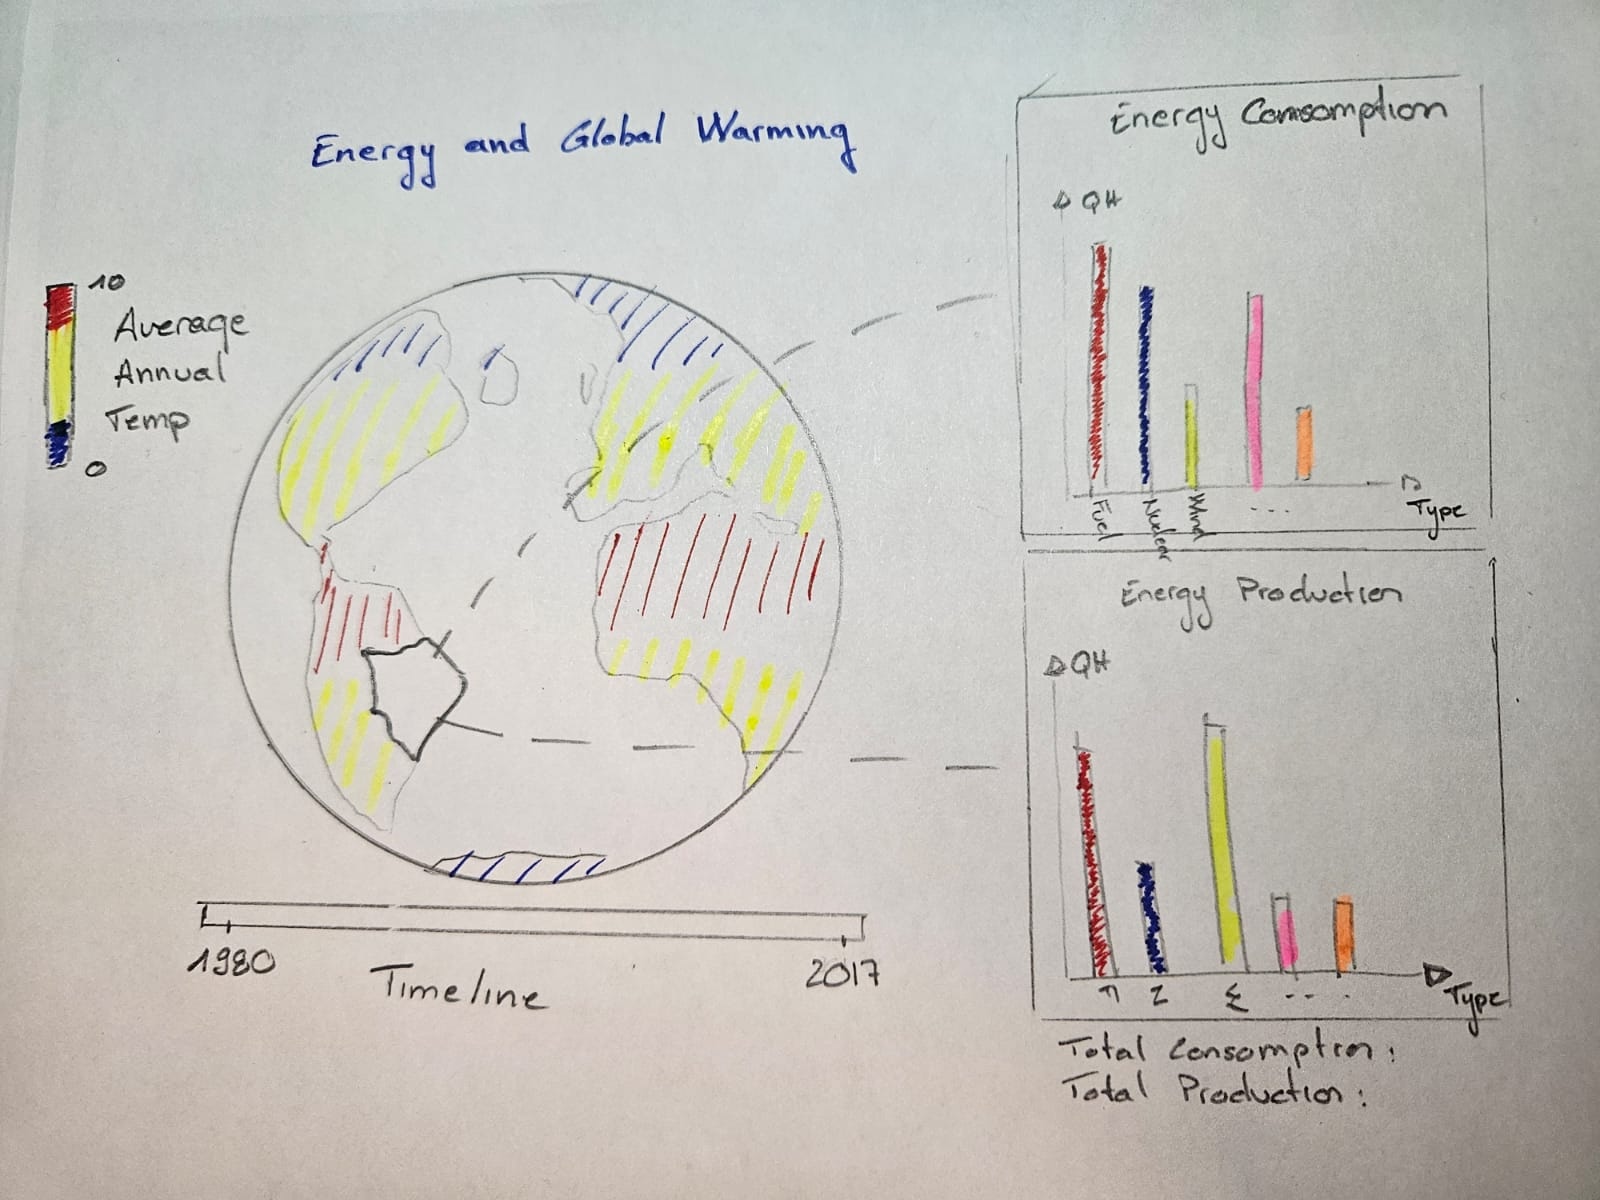 Energy and Global Warming
10
Average
Annual
Temp
0
1980
2017
Timeline
Energy Comsomption
QH
Fuel
Nuclear
Wind
...
Type
Energy Production
QH
F
N
W
...
Type
Total Consomption:
Total Production: